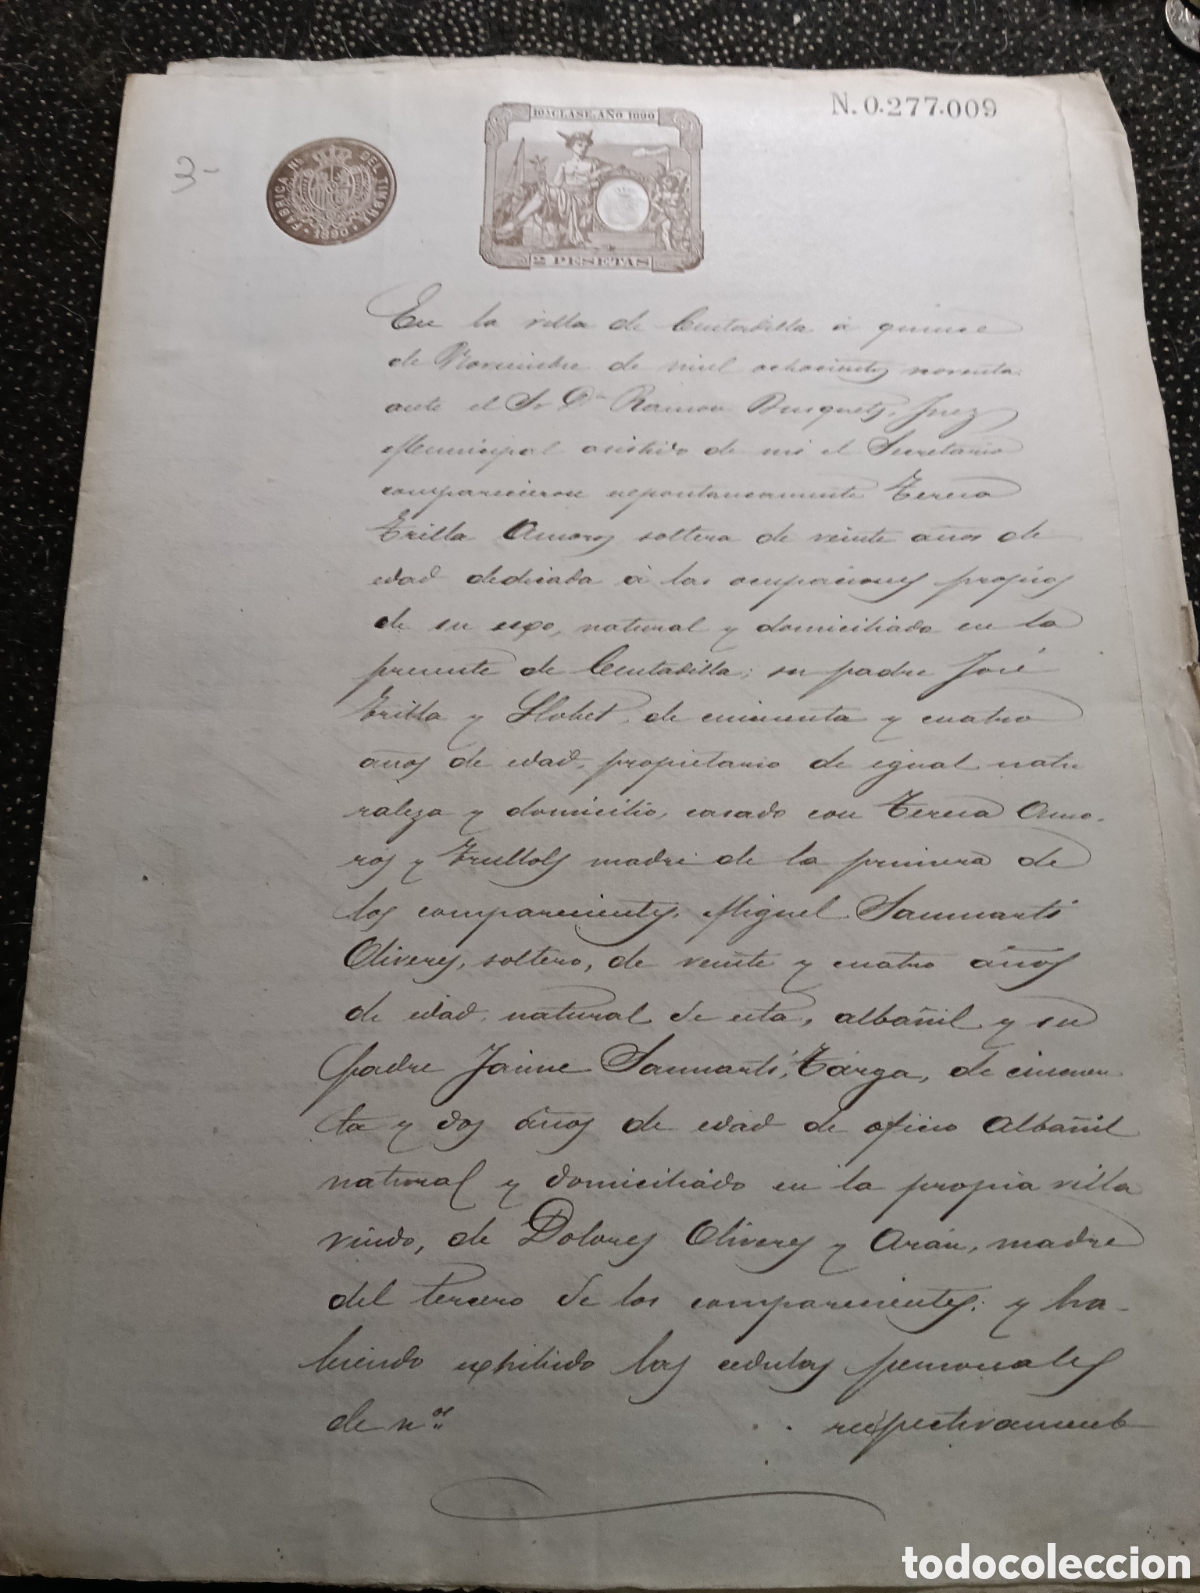 N. 0.277.009
10ª CLASE. AÑO 1890
FABRICA Nal DEL TIMBRE
1890
2 PESETAS
3-
En la villa de Ciutadilla á quince
de Noviembre de mil ochocientos noventa
ante el Sr Dn Ramon Busquets, Juez
Municipal asistido de mi el Secretario
comparecieron espontaneamente Teresa
Trilla Amoros soltera de veinte años de
edad dedicada á las ocupaciones propias
de su sexo, natural y domiciliada en la
presente de Ciutadilla; su padre José
Trilla y Llobet, de cincuenta y cuatro
años de edad, propietario de igual natu
raleza y domicilio, casado con Teresa Amo-
rós y Trullols madre de la primera de
los comparecientes, Miguel Sanmartí
Oliveres, soltero, de veinte y cuatro años
de edad, natural de esta, albañil y su
padre Jaime Sanmartí, Tárga, de cincuen
ta y dos años de edad de oficio Albañil
natural y domiciliado en la propia villa
viudo, de Dolores Oliveres y Arán, madre
del tercero de los comparecientes; y ha-
biendo exhibido las cedulas personales
de nos respectivamente
todocoleccion